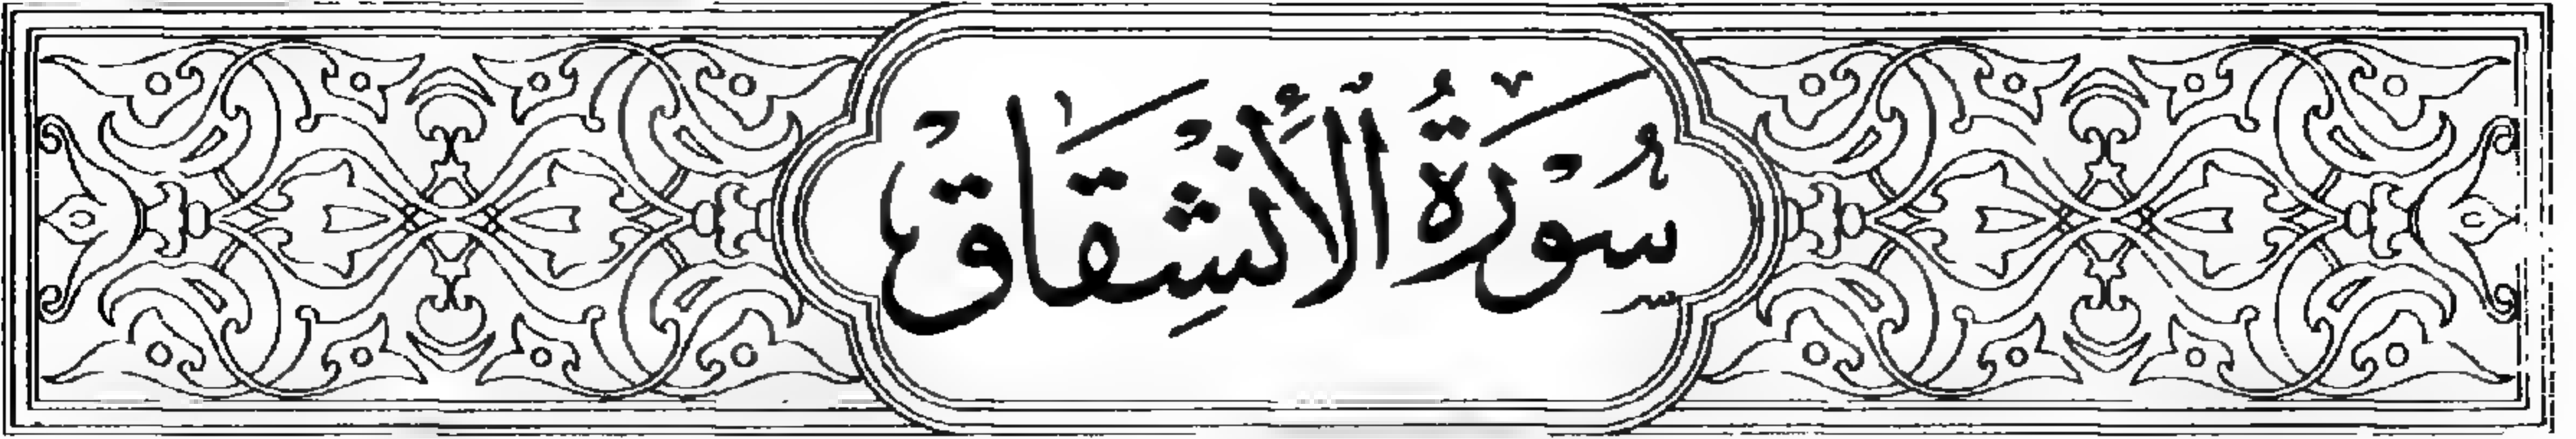 سُوْرَةُ الْأَنْشِقَاق